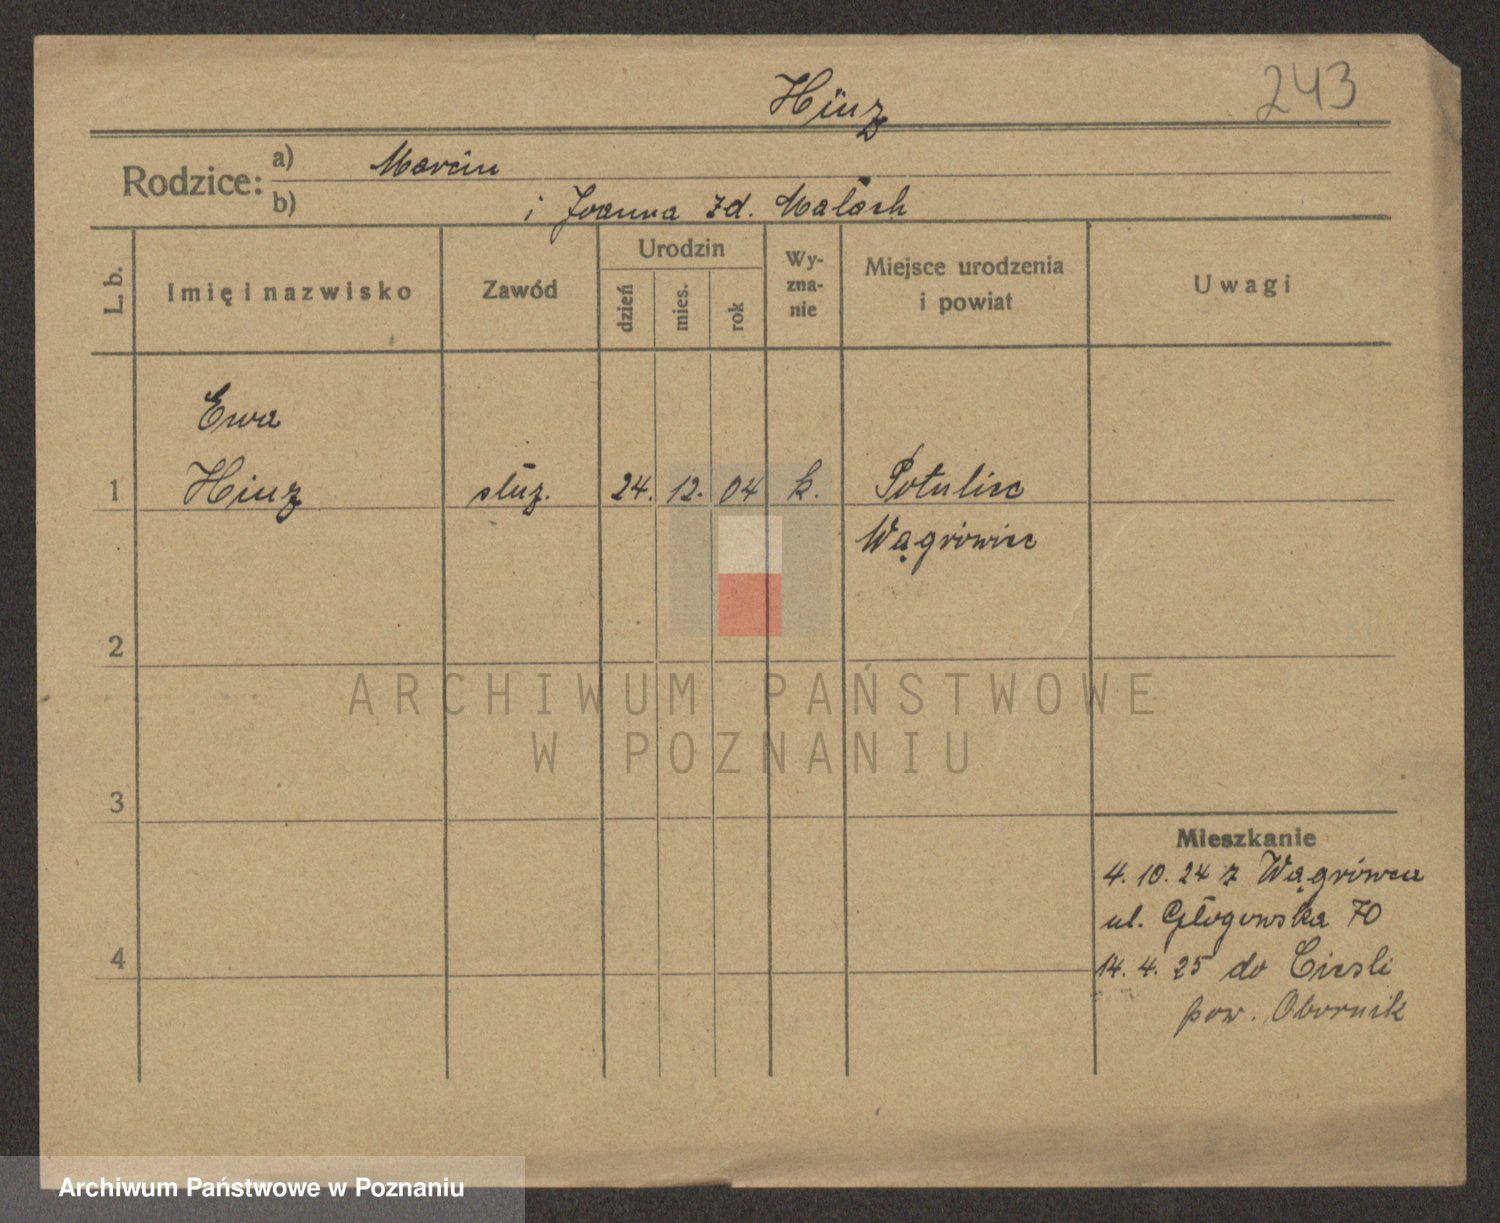 Hinz
243
Rodzice:
a) Marcin
b) i Joanna zd. Małach
L. b.
Imię i nazwisko
Zawód
Urodzin
dzień
mies.
rok
Wy-
zna-
nie
Miejsce urodzenia
i powiat
Uwagi
Ewa
1 Hinz służ. 24. 12. 04 k. Potulice
Wągrowiec
2
3
4
Mieszkanie
4. 10. 24 z Wągrówca
ul. Głogowska 70
14. 4. 25 do Ciesli
pow. Obornik
ARCHIWUM PAŃSTWOWE
W POZNANIU
Archiwum Państwowe w Poznaniu